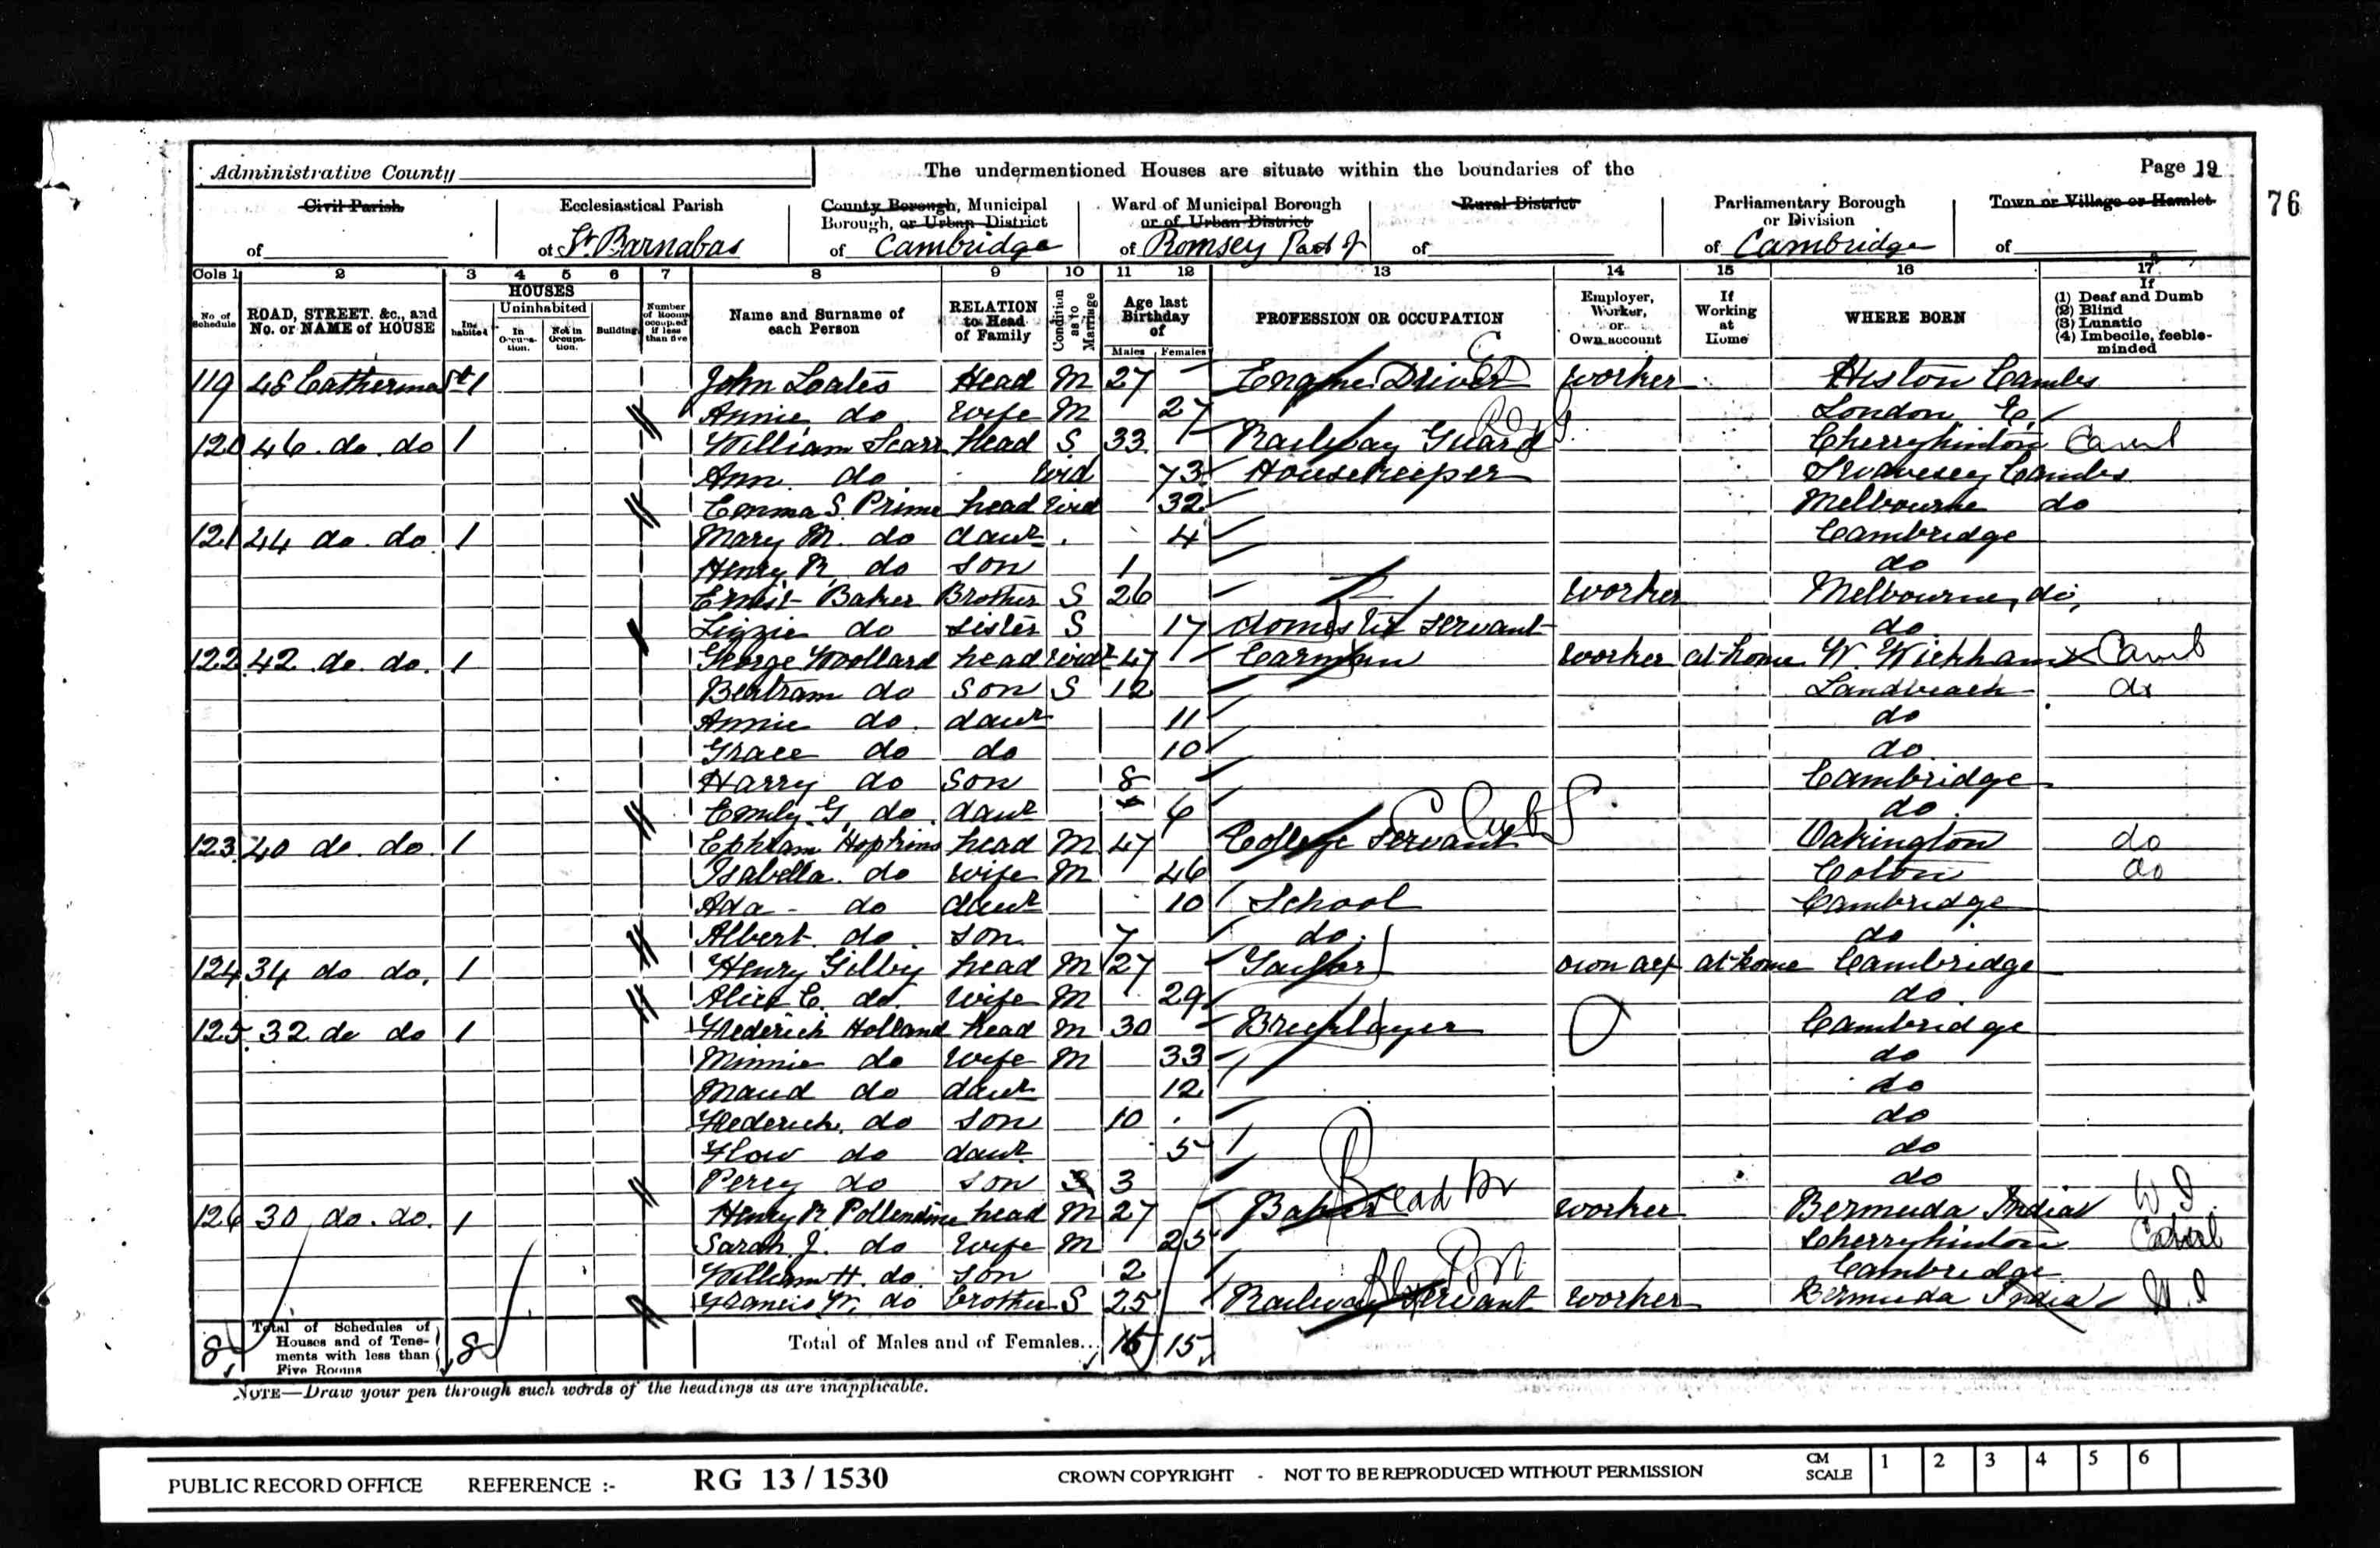 Administrative County
The undermentioned Houses are situate within the boundaries of the
Page 19
76
Civil Parish
of
Ecclesiastical Parish
of St Barnabas
County Borough, Municipal
Borough, or Urban District
of Cambridge
Ward of Municipal Borough
or of Urban District
of Romsey Part of
Rural District
of
Parliamentary Borough
or Division
of Cambridge
Town or Village or Hamlet
of
Cols 1 2 3 4 5 6 7 8 9 10 11 12 13 14 15 16 17
No. of Schedule
ROAD, STREET, &c., and No. or NAME of HOUSE
HOUSES
Inhabited
Uninhabited
In Occupation.
Not in Occupation.
Building
Number of Rooms occupied if less than five
Name and Surname of each Person
RELATION to Head of Family
Condition as to Marriage
Age last Birthday of
Males Females
PROFESSION OR OCCUPATION
Employer, Worker, or Own account
If Working at Home
WHERE BORN
If
(1) Deaf and Dumb
(2) Blind
(3) Lunatic
(4) Imbecile, feeble-minded
119 48 Catherine St 1 John Loates Head M 27 Engine Driver worker Histon Cambs
Annie do wife M 27 London E.
120 46 do do 1 William Scarr head S 33 Railway Guard Cherryhinton Camb
Ann do Wid 73 Housekeeper Swavesey Cambs
Emma S. Prime head Wid 32 Melbourne do
121 44 do do 1 Mary M. do daur 4 Cambridge
Henry R. do son 1 do
Ernest Baker Brother S 26 worker Melbourne do
Lizzie do sister S 17 domestic servant do
122 42 do do 1 George Woollard head widr 47 Carman worker at home W. Wickham Camb
Bertram do son S 12 Landbeach do
Annie do daur 11 do
Grace do do 10 do
Harry do son 8 Cambridge
Emily G. do daur 6 do
123 40 do do 1 Ephraim Hopkins head M 47 College Servant Oakington do
Isabella do wife M 46 Coton do
Ada do daur 10 School Cambridge
Albert do son 7 do do
124 34 do do 1 Henry Gilby head M 27 Tailor own act at home Cambridge
Alice C. do wife M 29 do
125 32 do do 1 Frederick Holland head M 30 Bricklayer Cambridge
Minnie do wife M 33 do
Maud do daur 12 do
Frederick do son 10 do
Flow do daur 5 do
Percy do son 3 do
126 30 do do 1 Henry R. Pollendine head M 27 Baker Bread worker Bermuda India W I
Sarah J. do wife M 25 Cherryhinton
William H. do son 2 Cambridge
Francis W. do brother S 25 Railway Servant worker Bermuda India W.I
8 Total of Schedules of Houses and of Tenements with less than Five Rooms 8 Total of Males and of Females... 16 15
NOTE—Draw your pen through such words of the headings as are inapplicable.
PUBLIC RECORD OFFICE REFERENCE :- RG 13 / 1530 CROWN COPYRIGHT - NOT TO BE REPRODUCED WITHOUT PERMISSION CM SCALE 1 2 3 4 5 6